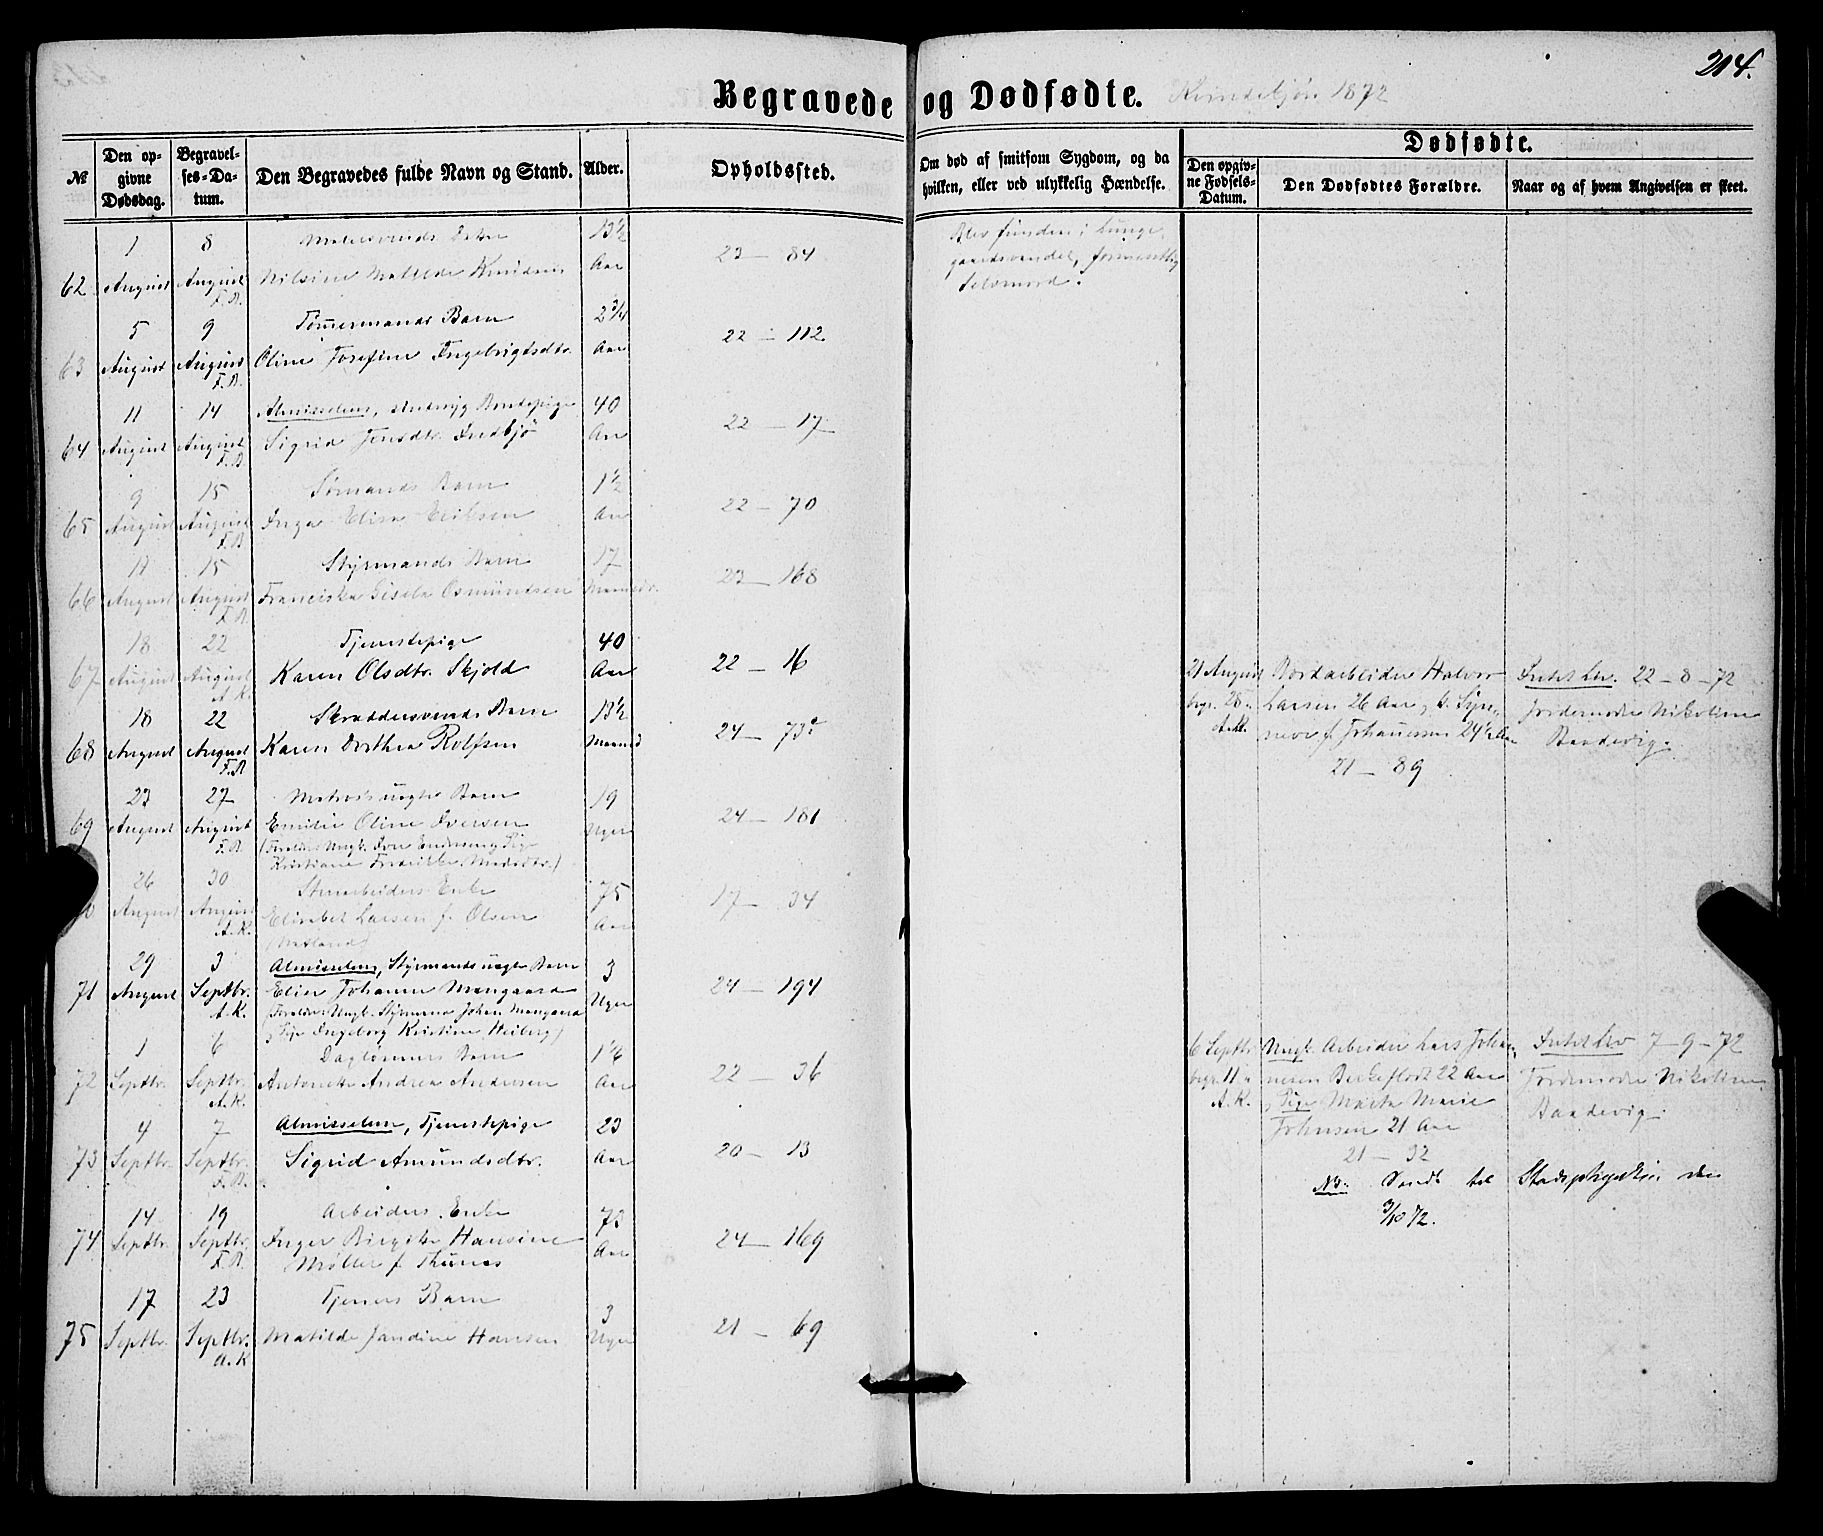 214.
Begravede og Dødfødte. Kvindekjøn 1872
Dødfødte.
№ Den opgivne Dødsdag. Begravelses-Datum. Den Begravedes fulde Navn og Stand. Alder. Opholdssted. Om død af smitsom Sygdom, og da hvilken, eller ved ulykkelig Hændelse. Den opgivne Fødsels-Datum. Den Dødfødtes Forældre. Naar og af hvem Angivelsen er skeet.
1 8 13½
62 August August Nilsine Matilde Knudsen Aar 23 — 84
F.B.
Blev funden i Lunge-
gaardsvandet, formentlig
Selvmord.
5 9 Tømermands Barn 2¾
63 August August Oline Josefine Ingebrigtsdtr. Aar 22 — 112
F.B.
11 14 Almisselem, 40
64 August August Sigrid Jensdtr. Indbjø Aar 22 — 17
F.B.
9 15 Sømands Barn 1½
65 August August Inga Elisa Eriksen Aar 22 — 70
F.B.
11 15 Styrmands Barn 17
66 August August Franciska Gisela Osmundsen Maaneder 23 — 168
F.B.
18 22 Tjenestepige 40
67 August August Karen Olsdtr. Skjold Aar 22 — 16
A.K.
18 22 Skræddersvends Barn 13½
68 August August Karen Dorthea Rolfsen Maaned 24 — 73
F.B.
23 27 Matros uegte Barn 19
69 August August Emilie Oline Iversen Uger 24 — 181
F.B.
Kristiane
26 30 Stenarbeiders Enke 75
August August Elisabet Larsen f. Olsen Aar 17 — 34
A.K.
29 3 Almisselem, Styrmands uegte Barn 3
71 August Septbr. Elise Johanne Mangaard Uger 24 — 194
A.K. (Forældre: Ungk. Styrmand Johan Mangaard
og Pige Ingeborg Kristine Heiberg)
1 6 Daglønners Barn 1
72 Septbr. Septbr. Antonette Andrea Andersen Aar 22 — 36
A.K.
4 7 Almisselem, Tjenestepige 23
73 Septbr. Septbr. Sigrid Amundsdtr. Aar 20 — 13
F.B.
14 19 Arbeiders Enke 73
74 Septbr. Septbr. Inger Birgitte Hansine Aar 24 — 169
F.B. Møller f.
17 23 Tjeners Barn 3
75 Septbr. Septbr. Matilde Jandine Hansen Uger 21 — 69
A.K.
21 August Halvor
begr. 28 Larsen 26 Aar
A.K. f. Johannesen 24½ Aar
21 — 89
Intet Lev. 22–8–72
Jordemoder Nikoline
Sandevig.
6 Septbr. Ungk. Arbeider Lars Johan-
begr. 11 nesen 22 Aar
A.K. og Pige Marta Marie
Johnsen 21 Aar
21 — 32
Intet Lev 7–9–72
Jordemoder Nikoline
Sandevig.
NB. Sendt til Stadsphysikus den
3/10 72.